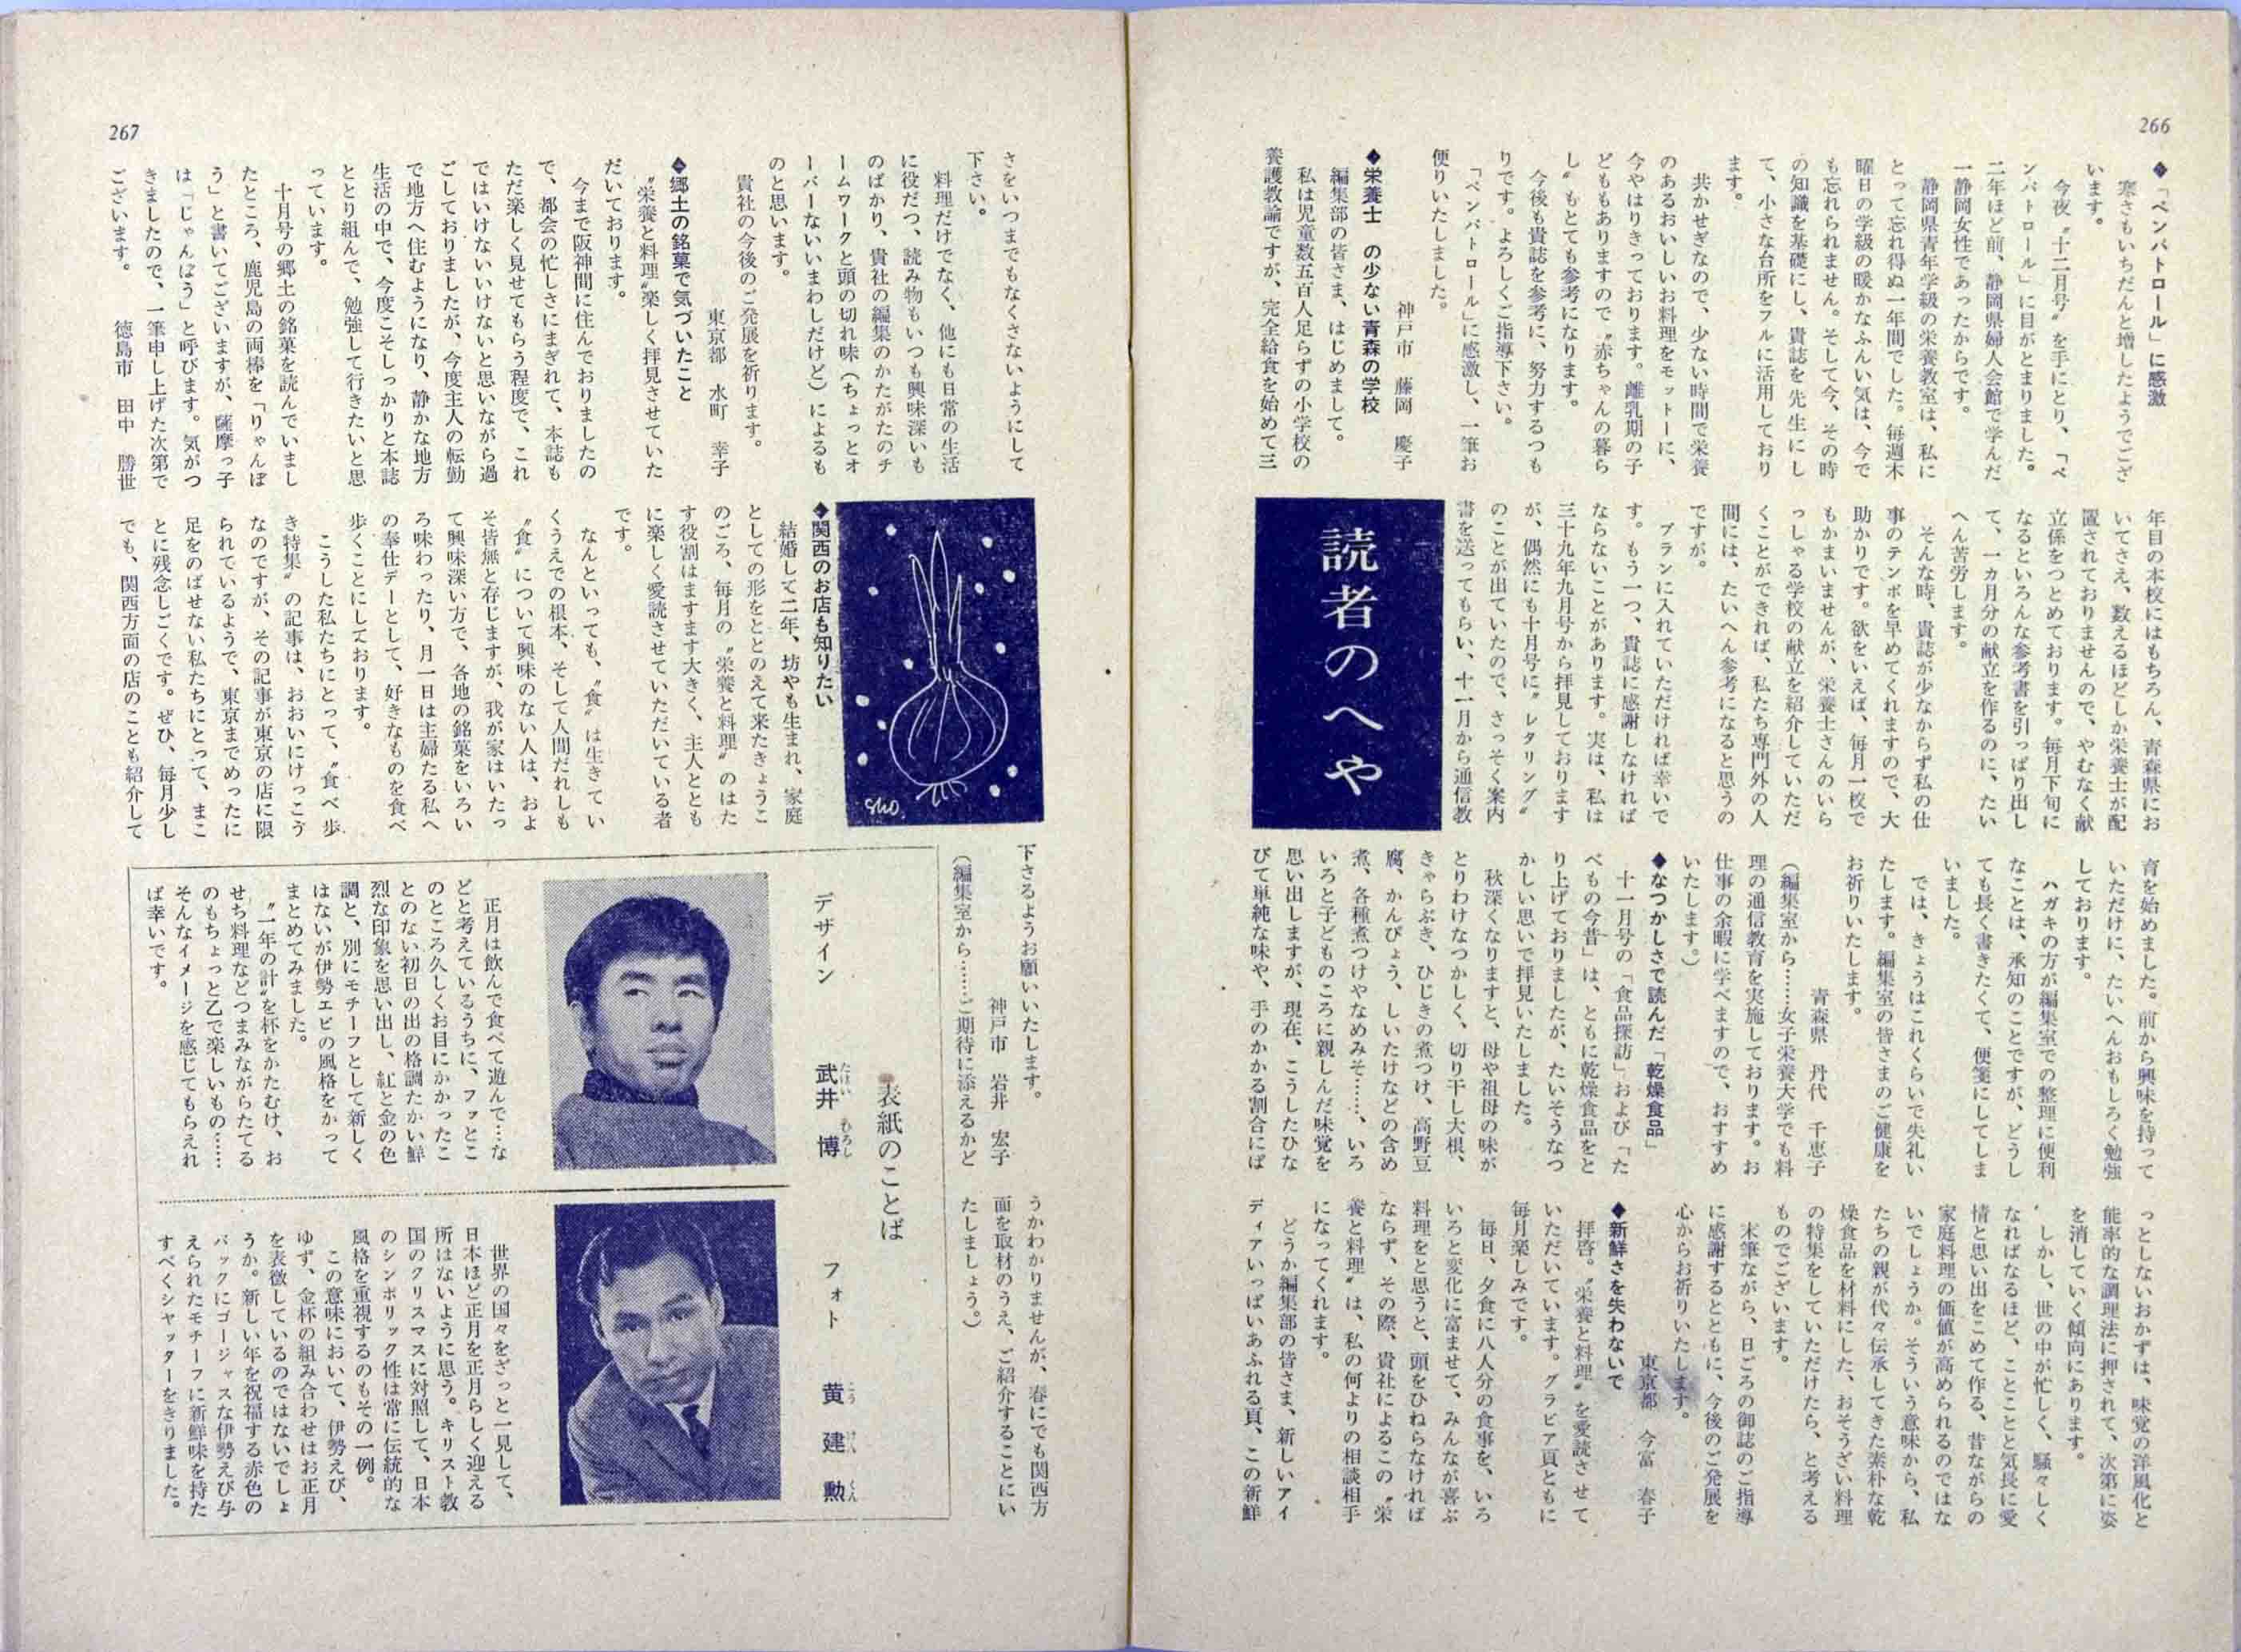 266
◆「ペンパトロール」に感激
寒さもいちだんと増したようでござ
います。
今夜〝十二月号〟を手にとり、「ペ
ンパトロール」に目がとまりました。
二年ほど前、静岡県婦人会館で学んだ
一静岡女性であったからです。
静岡県青年学級の栄養教室は、私に
とって忘れ得ぬ一年間でした。毎週木
曜日の学級の暖かなふんい気は、今で
も忘れられません。そして今、その時
の知識を基礎にし、貴誌を先生にし
て、小さな台所をフルに活用しており
ます。
共かせぎなので、少ない時間で栄養
のあるおいしいお料理をモットーに、
今やはりきっております。離乳期の子
どももありますので〝赤ちゃんの暮ら
し〟もとても参考になります。
今後も貴誌を参考に、努力するつも
りです。よろしくご指導下さい。
「ペンパトロール」に感激し、一筆お
便りいたしました。
神戸市 藤岡 慶子
◆栄養士 の少ない青森の学校
編集部の皆さま、はじめまして。
私は児童数五百人足らずの小学校の
養護教諭ですが、完全給食を始めて三
年目の本校にはもちろん、青森県にお
いてさえ、数えるほどしか栄養士が配
置されておりませんので、やむなく献
立係をつとめております。毎月下旬に
なるといろんな参考書を引っぱり出し
て、一カ月分の献立を作るのに、たい
へん苦労します。
そんな時、貴誌が少なからず私の仕
事のテンポを早めてくれますので、大
助かりです。欲をいえば、毎月一校で
もかまいませんが、栄養士さんのいら
っしゃる学校の献立を紹介していただ
くことができれば、私たち専門外の人
間には、たいへん参考になると思うの
ですが。
プランに入れていただければ幸いで
す。もう一つ、貴誌に感謝しなければ
ならないことがあります。実は、私は
三十九年九月号から拝見しております
が、偶然にも十月号に〝レタリング〟
のことが出ていたので、さっそく案内
書を送ってもらい、十一月から通信教
読者のへや
育を始めました。前から興味を持って
いただけに、たいへんおもしろく勉強
しております。
ハガキの方が編集室での整理に便利
なことは、承知のことですが、どうし
ても長く書きたくて、便箋にしてしま
いました。
では、きょうはこれくらいで失礼い
たします。編集室の皆さまのご健康を
お祈りいたします。
青森県 丹代 千恵子
(編集室から……女子栄養大学でも料
理の通信教育を実施しております。お
仕事の余暇に学べますので、おすすめ
いたします。)
◆なつかしさで読んだ「乾燥食品」
十一月号の「食品探訪」および「た
べもの今昔」は、ともに乾燥食品をと
り上げておりましたが、たいそうなつ
かしい思いで拝見いたしました。
秋深くなりますと、母や祖母の味が
とりわけなつかしく、切り干し大根、
きゃらぶき、ひじきの煮つけ、高野豆
腐、かんぴょう、しいたけなどの含め
煮、各種煮つけやなめみそ……、いろ
いろと子どものころに親しんだ味覚を
思い出しますが、現在、こうしたひな
びて単純な味や、手のかかる割合にぱ
っとしないおかずは、味覚の洋風化と
能率的な調理法に押されて、次第に姿
を消していく傾向にあります。
しかし、世の中が忙しく、騒々しく
なればなるほど、ことことと気長に愛
情と思い出をこめて作る、昔ながらの
家庭料理の価値が高められるのではな
いでしょうか。そういう意味から、私
たちの親が代々伝承してきた素朴な乾
燥食品を材料にした、おそうざい料理
の特集をしていただけたら、と考える
ものでございます。
末筆ながら、日ごろの御誌のご指導
に感謝するとともに、今後のご発展を
心からお祈りいたします。
東京都 今富 春子
◆新鮮さを失わないで
拝啓。〝栄養と料理〟を愛読させて
いただいています。グラビア頁ともに
毎月楽しみです。
毎日、夕食に八人分の食事を、いろ
いろと変化に富ませて、みんなが喜ぶ
料理をと思うと、頭をひねらなければ
ならず、その際、貴社によるこの〝栄
養と料理〟は、私の何よりの相談相手
になってくれます。
どうか編集部の皆さま、新しいアイ
ディアいっぱいあふれる頁、この新鮮
267
さをいつまでもなくさないようにして
下さい。
料理だけでなく、他にも日常の生活
に役だつ、読み物もいつも興味深いも
のばかり、貴社の編集のかたがたのチ
ームワークと頭の切れ味(ちょっとオ
ーバーないいまわしだけど)によるも
のと思います。
貴社の今後のご発展を祈ります。
東京都 水町 幸子
◆郷土の銘菓で気づいたこと
〝栄養と料理〟楽しく拝見させていた
だいております。
今まで阪神間に住んでおりましたの
で、都会の忙しさにまぎれて、本誌も
ただ楽しく見せてもらう程度で、これ
ではいけないいけないと思いながら過
ごしておりましたが、今度主人の転勤
で地方へ住むようになり、静かな地方
生活の中で、今度こそしっかりと本誌
ととり組んで、勉強して行きたいと思
っています。
十月号の郷土の銘菓を読んでいまし
たところ、鹿児島の両棒を「りゃんぼ
う」と書いてございますが、薩摩っ子
は「じゃんぼう」と呼びます。気がつ
きましたので、一筆申し上げた次第で
ございます。 徳島市 田中 勝世
Sho
◆関西のお店も知りたい
結婚して二年、坊やも生まれ、家庭
としての形をととのえて来たきょうこ
のごろ、毎月の〝栄養と料理〟のはた
す役割はますます大きく、主人ととも
に楽しく愛読させていただいている者
です。
なんといっても、〝食〟は生きてい
くうえでの根本、そして人間だれしも
〝食〟について興味のない人は、およ
そ皆無と存じますが、我が家はいたっ
て興味深い方で、各地の銘菓をいろい
ろ味わったり、月一日は主婦たる私へ
の奉仕デーとして、好きなものを食べ
歩くことにしております。
こうした私たちにとって、〝食べ歩
き特集〟の記事は、おおいにけっこう
なのですが、その記事が東京の店に限
られているようで、東京までめったに
足をのばせない私たちにとって、まこ
とに残念しごくです。ぜひ、毎月少し
でも、関西方面の店のことも紹介して
下さるようお願いいたします。
神戸市 岩井 宏子
(編集室から……ご期待に添えるかど
うかわかりませんが、春にでも関西方
面を取材のうえ、ご紹介することにい
たしましょう。)
表紙のことば
デザイン 武井 博
たけい ひろし
正月は飲んで食べて遊んで…な
どと考えているうちに、フッとこ
のところ久しくお目にかかったこ
とのない初日の出の格調たかい鮮
烈な印象を思い出し、紅と金の色
調と、別にモチーフとして新しく
はないが伊勢エビの風格をかって
まとめてみました。
〝一年の計〟を杯をかたむけ、お
せち料理などつまみながらたてる
のもちょっと乙で楽しいもの……
そんなイメージを感じてもらえれ
ば幸いです。
フォト 黄 建 勲
こう けん くん
世界の国々をざっと一見して、
日本ほど正月を正月らしく迎える
所はないように思う。キリスト教
国のクリスマスに対照して、日本
のシンボリック性は常に伝統的な
風格を重視するのもその一例。
この意味において、伊勢えび、
ゆず、金杯の組み合わせはお正月
を表徴しているのではないでしょ
うか。新しい年を祝福する赤色の
バックにゴージャスな伊勢えび与
えられたモチーフに新鮮味を持た
すべくシャッターをきりました。